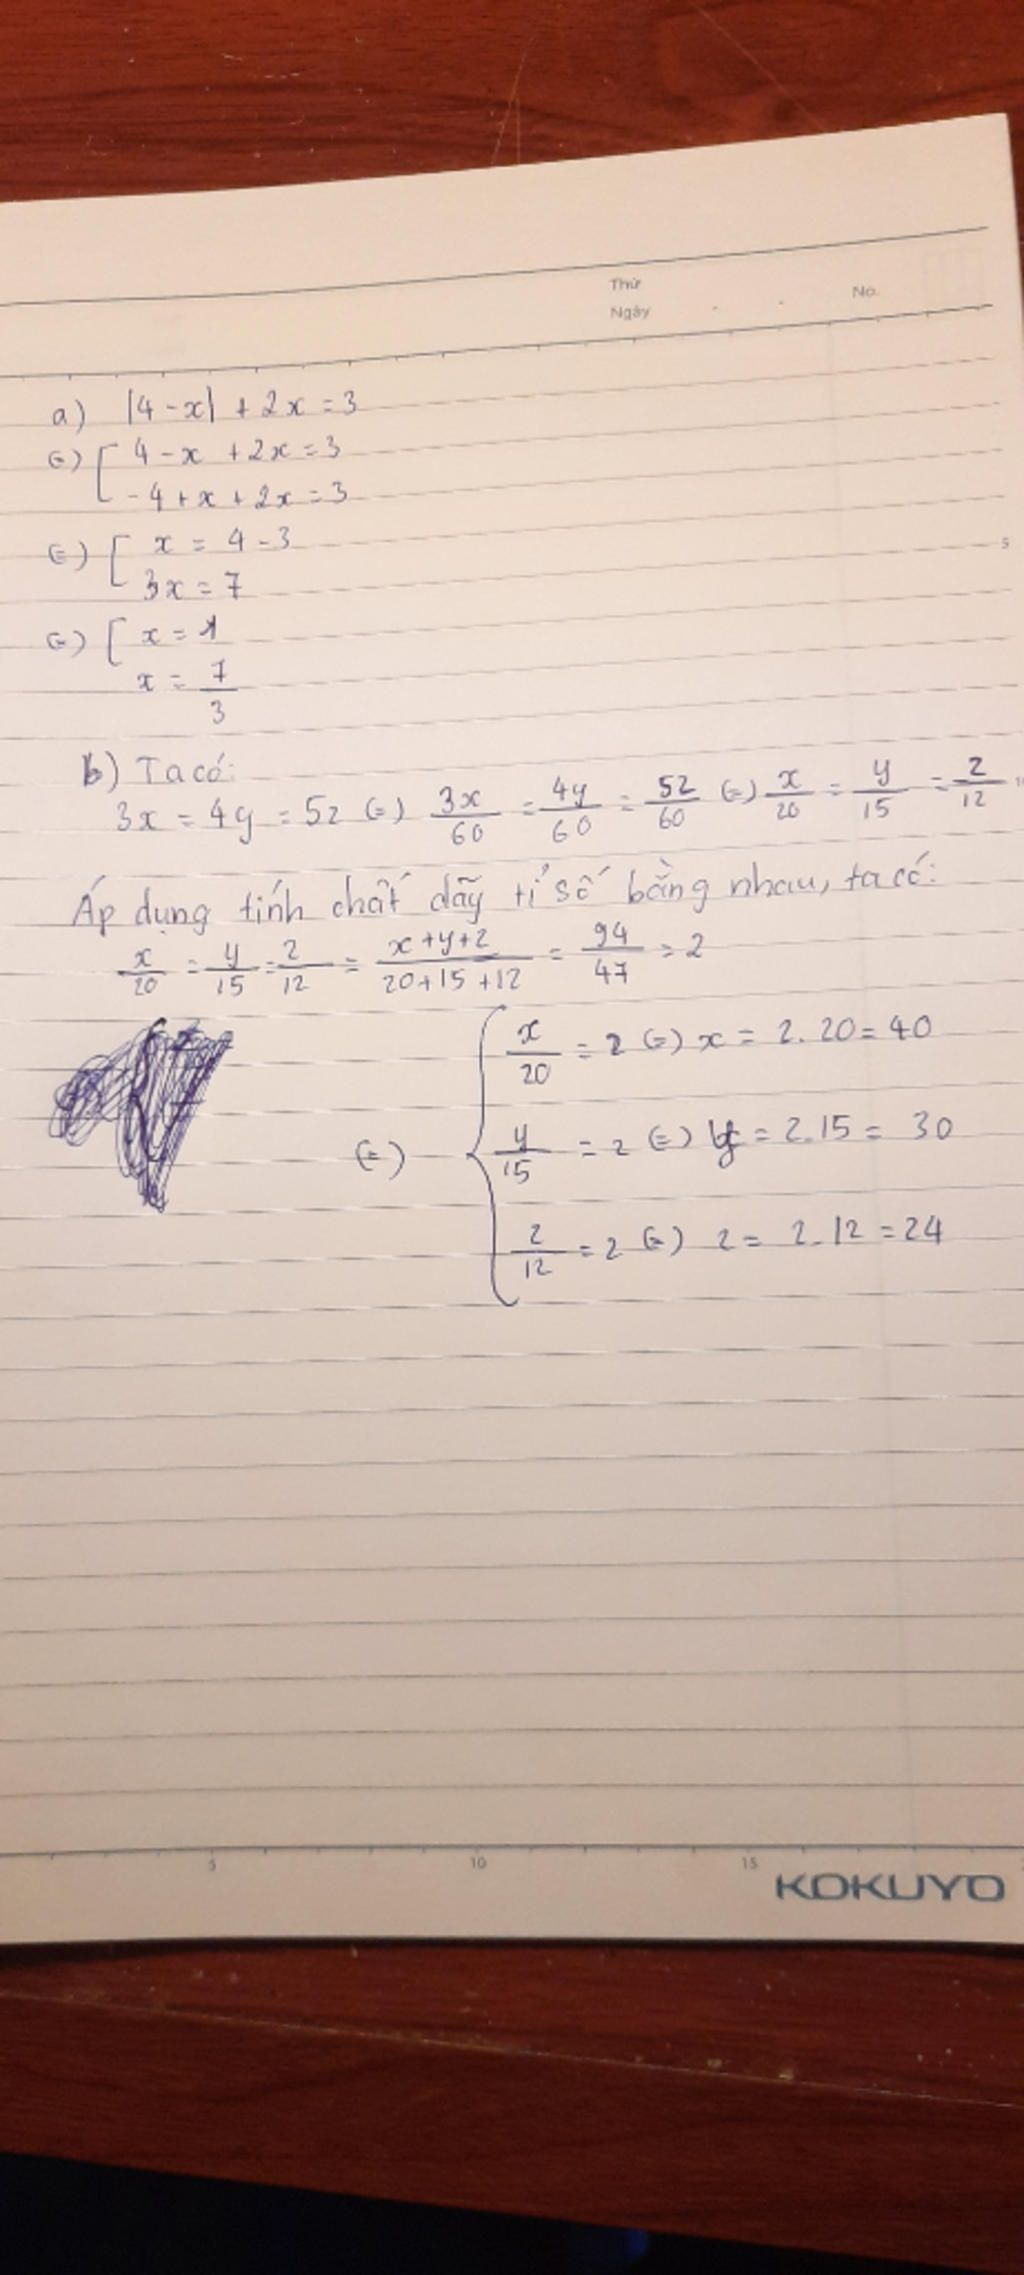 Thứ
Ngày . . No.
a) |4-x| + 2x = 3
(=) [ 4 - x + 2x = 3
- 4 + x + 2x = 3
5
(=) [ x = 4 - 3
3x = 7
(=) [ x = 1
x = 7/3
b) Ta có:
3x = 4y = 5z (=) 3x/60 = 4y/60 = 5z/60 (=) x/20 = y/15 = z/12
Áp dụng tính chất dãy tỉ số bằng nhau, ta có:
x/20 = y/15 = z/12 = x+y+z/20+15+12 = 94/47 = 2
x/20 = 2 (=) x = 2.20 = 40
(=) { y/15 = 2 (=) y = 2.15 = 30
z/12 = 2 (=) z = 2.12 = 24
5 10 15
KOKUYO